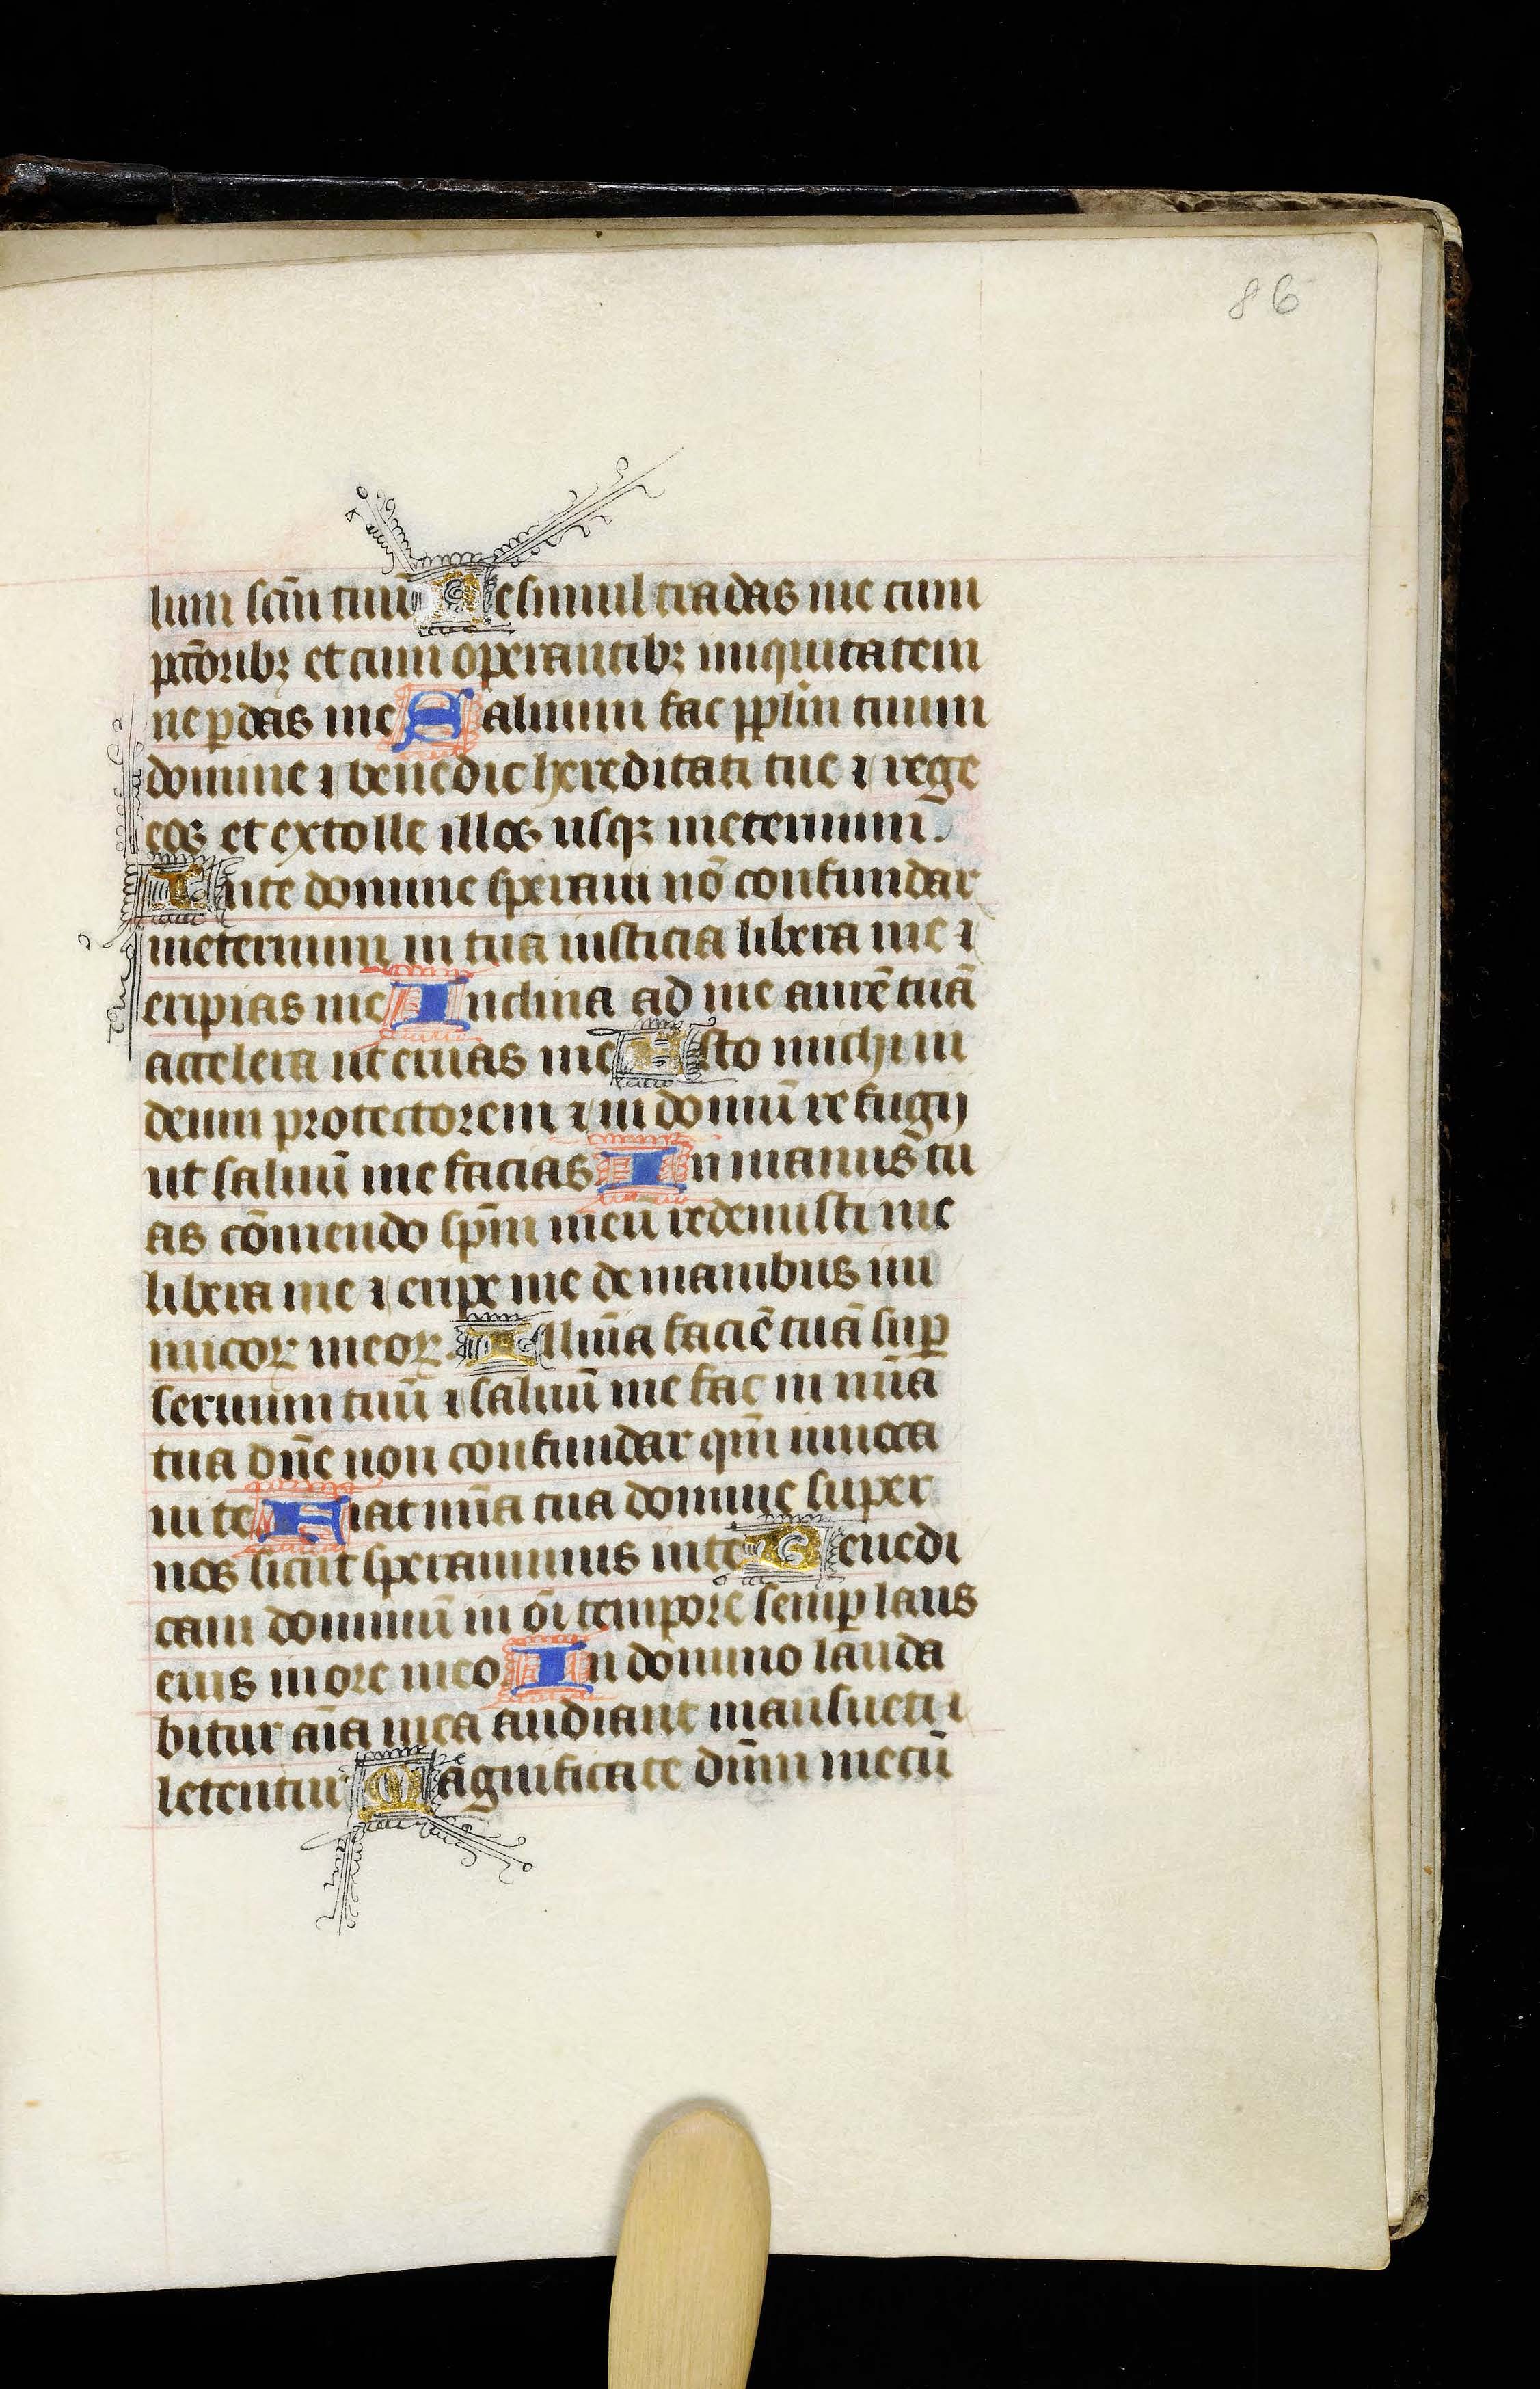 86
lum sc̄m tuū Ne simul tradas me cum
pctōribꝫ et cum operantibꝫ iniquitatem
ne ꝑdas me Saluum fac pplm̄ tuum
domine ⁊ benedic hereditati tue ⁊ rege
eos et extolle illos usqꝫ ineternum.
In te domine speraui nō confundar
ineternum in tua iusticia libera me ⁊
eripias me Inclina ad me aurē tuā
accelera ut eruas me Esto michi in
deum protectorem ⁊ in domū refugij
ut saluū me facias In manus tu
as cōmendo sp̄m meū redemisti me
libera me ⁊ eripe me de manibus ini
micoꝝ meoꝝ. Illum̄a faciē tuā suꝑ
seruum tuū ⁊ saluū me fac in mīa
tua dn̄e non confundar qm̄ inuoca
ui te Fiat mīa tua domine super
nos sicut sperauimus in te Benedi
cam dominū in oī tempore semꝑ laus
eius in ore meo In domino lauda
bitur aīa mea audiant mansueti ⁊
letentur Magnificate dūm mecū